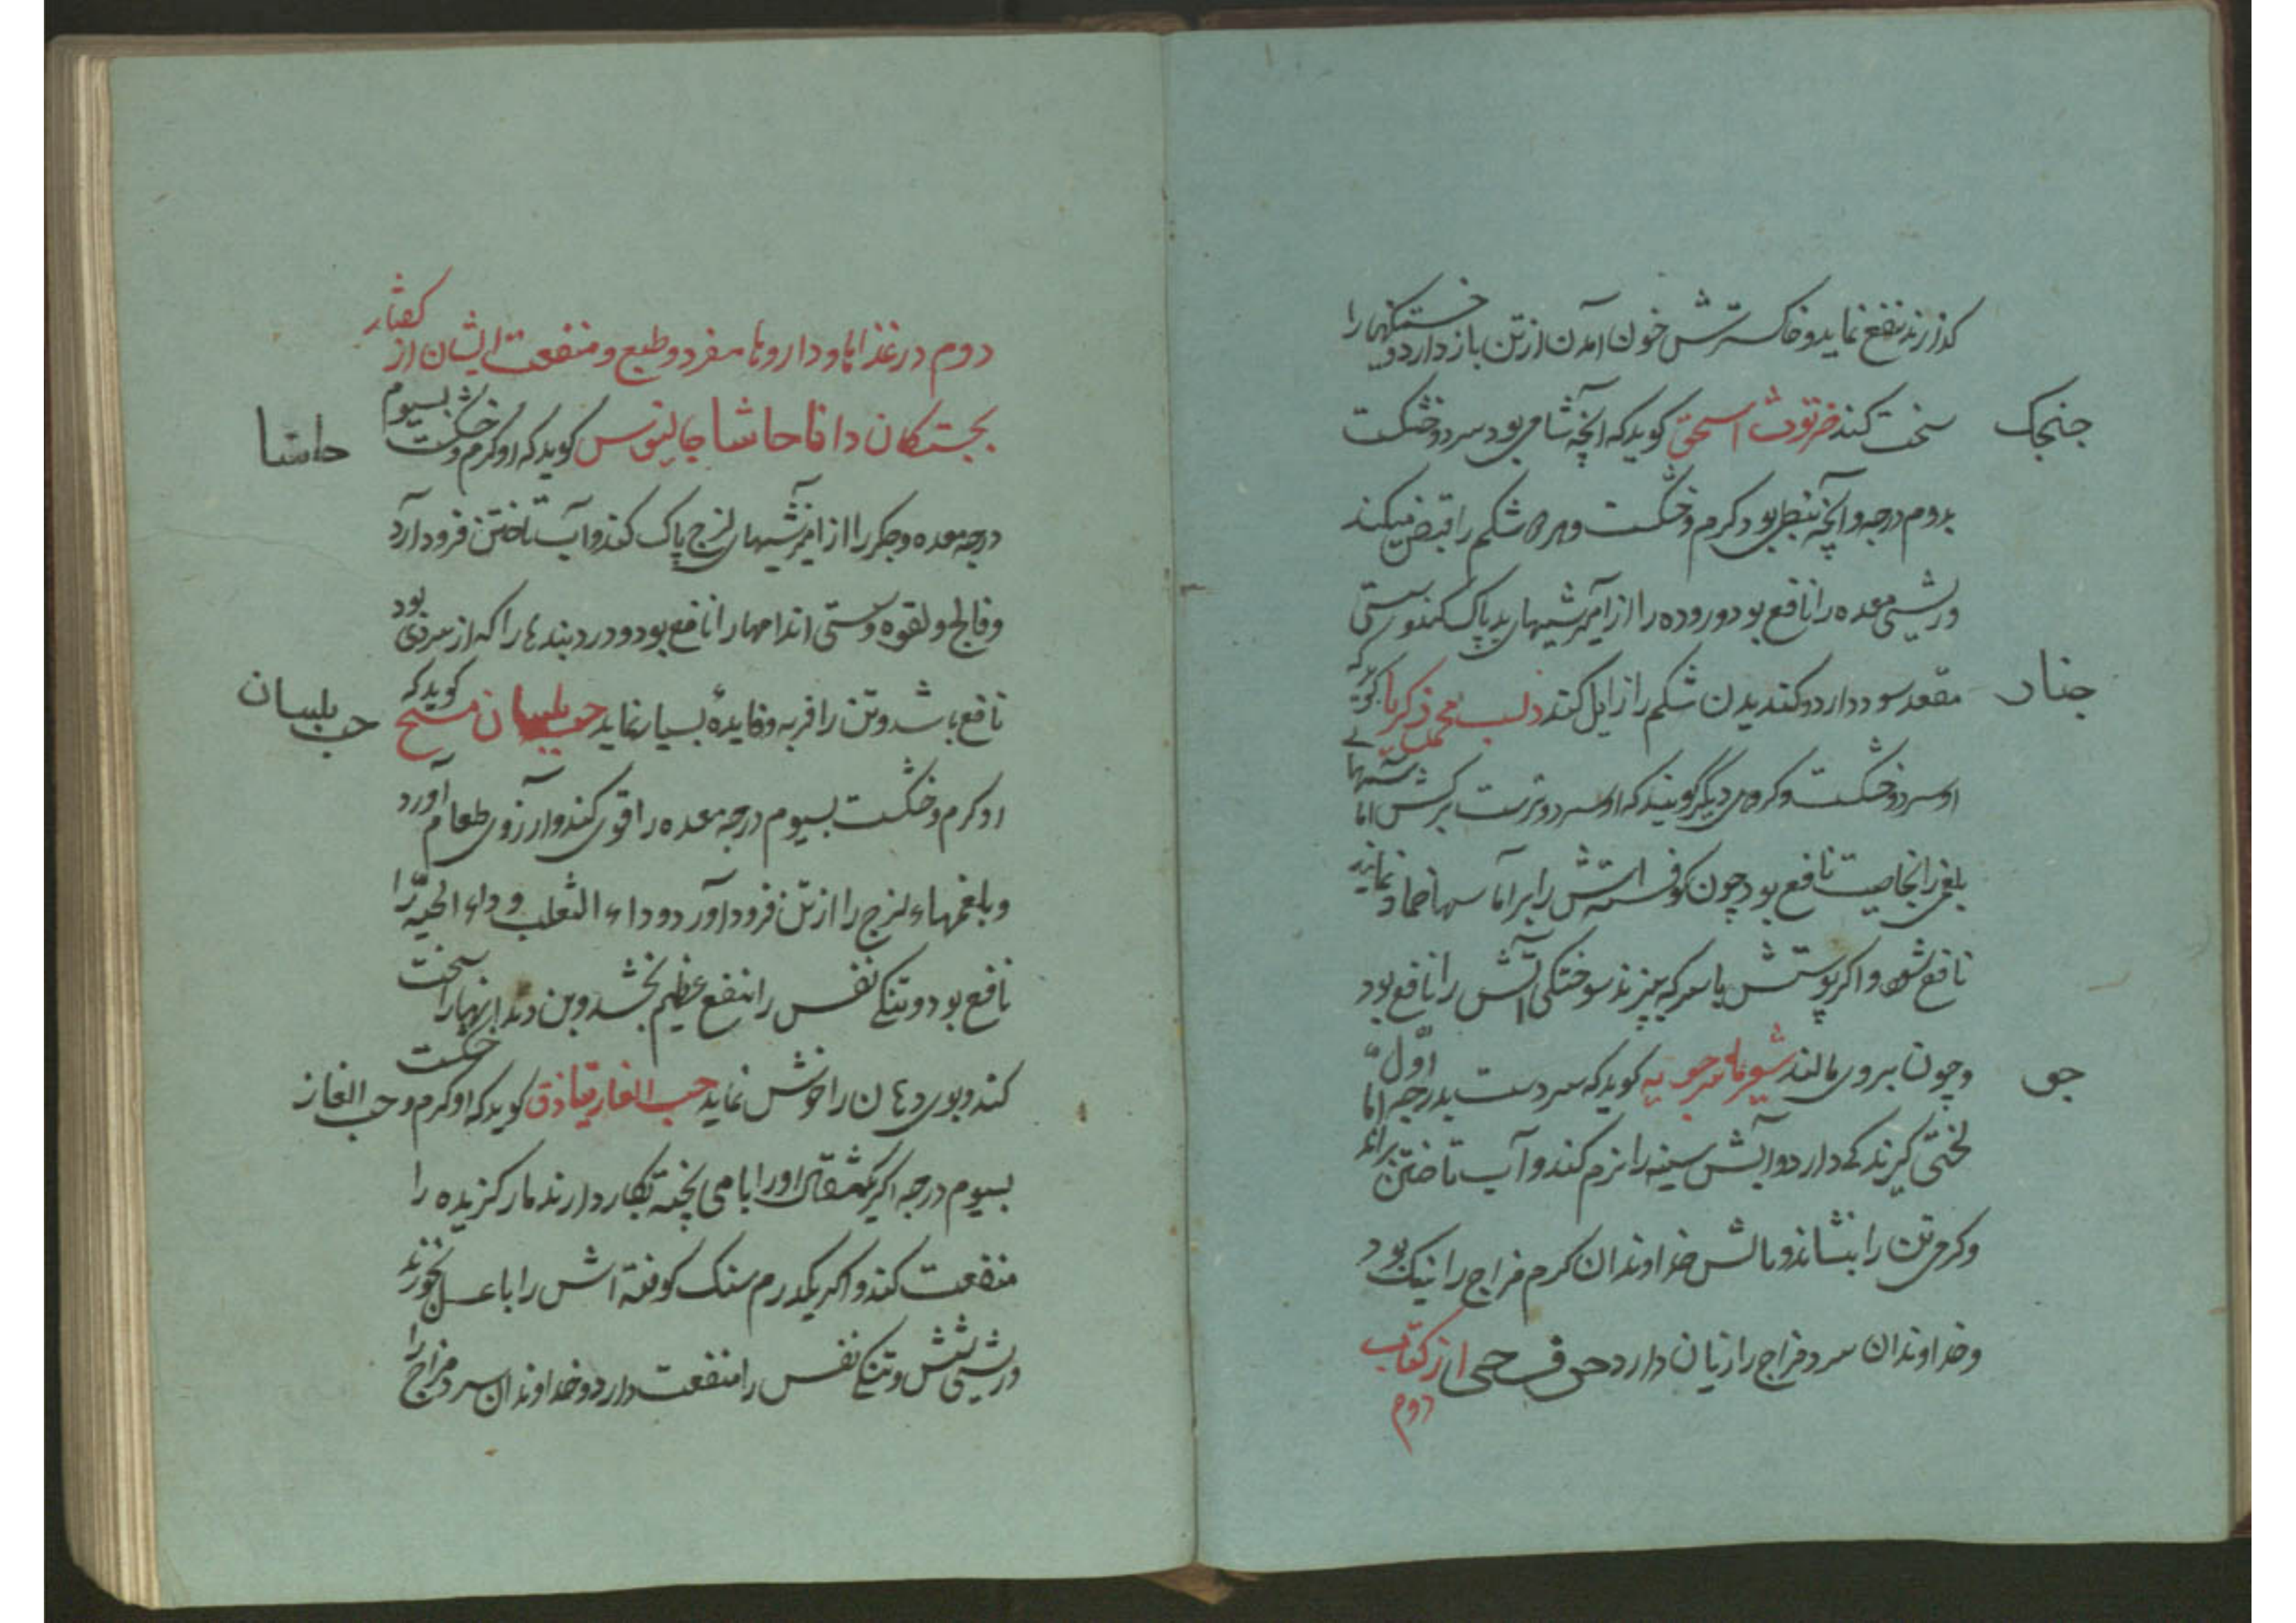 کدازرند نفع نماید و خاکسترش خون آمدن از تن باز دارد و خستکیها را
جنجک
سخت کند خرتوث اسحق کوید که آنچه شامی بود سرد و خشکست
بدوم درجه و آنچه نبطی بود کرم و خشکست و هر دو شکم را قبض میکند
و ریشی معده را نافع بود و روده را از آمیزشیهای بد پاک کند و سستی
جنار
مقعد سود دارد و کندیدن شکم را زایل کند دلب محمد زکریا کوید که
او سرد و خشکست و کروهی دیگر گویند که او سرد و ترست برکش اماسهای
بلغمی را بخاصیت نافع بود چون کوفته اش را بر آماسها ضماد نمایند
نافع شود و اکر پوستش با سرکه بپزند سوختکی آتش را نافع بود
جو
و چون بر وی مالند شعیر ماسرجویه کوید که سردست بدرجه اول اما
لختی گیرندکی دارد و آبش سینه را نرم کند و آب تاختن براند
و کرمی تن را بنشاند و مالش خداوندان کرم مزاج را نیک بود
و خداوندان سرد مزاج را زیان دارد حرف حی از کتاب
دوم
کفتار
دوم در غذاها و داروها مفرد و طبع و منفعت ایشان از
حاشا
بجستکان دانا حاشا جالینوس کوید که او کرم و خشکست بسیوم
درجه معده و جکر را از آمیزشیهای لزج پاک کند و آب تاختن فرود آرد
و فالج و لقوه و سستی اندامها را نافع بود و درد بندها را که از سردی بود
حب بلسان
نافع باشد و تن را فربه و فایدهٔ بسیار نماید حب بلسان مسیح کوید که
او کرم و خشکست بسیوم درجه معده را قوی کند و آرزوی طعام آورد
و بلغمهاء لزج را از تن فرود آورد و داء الثعلب و داء الحیّه را
نافع بود و تنکی نفس را نفع عظیم بخشد و بن دندانها را سخت
حب الغار
کند و بوی دهان را خوش نماید حب الغار قتاذق کوید که او کرم و خشکست
بسیوم درجه اکر یکمثقال او را با می پخته بکار دارند مار کزیده را
منفعت کند و اکر یکدرم سنک کوفته اش را با عسل بخورند
و ریشی شش و تنکی نفس را منفعت دارد و خداوندان سرد مزاج را